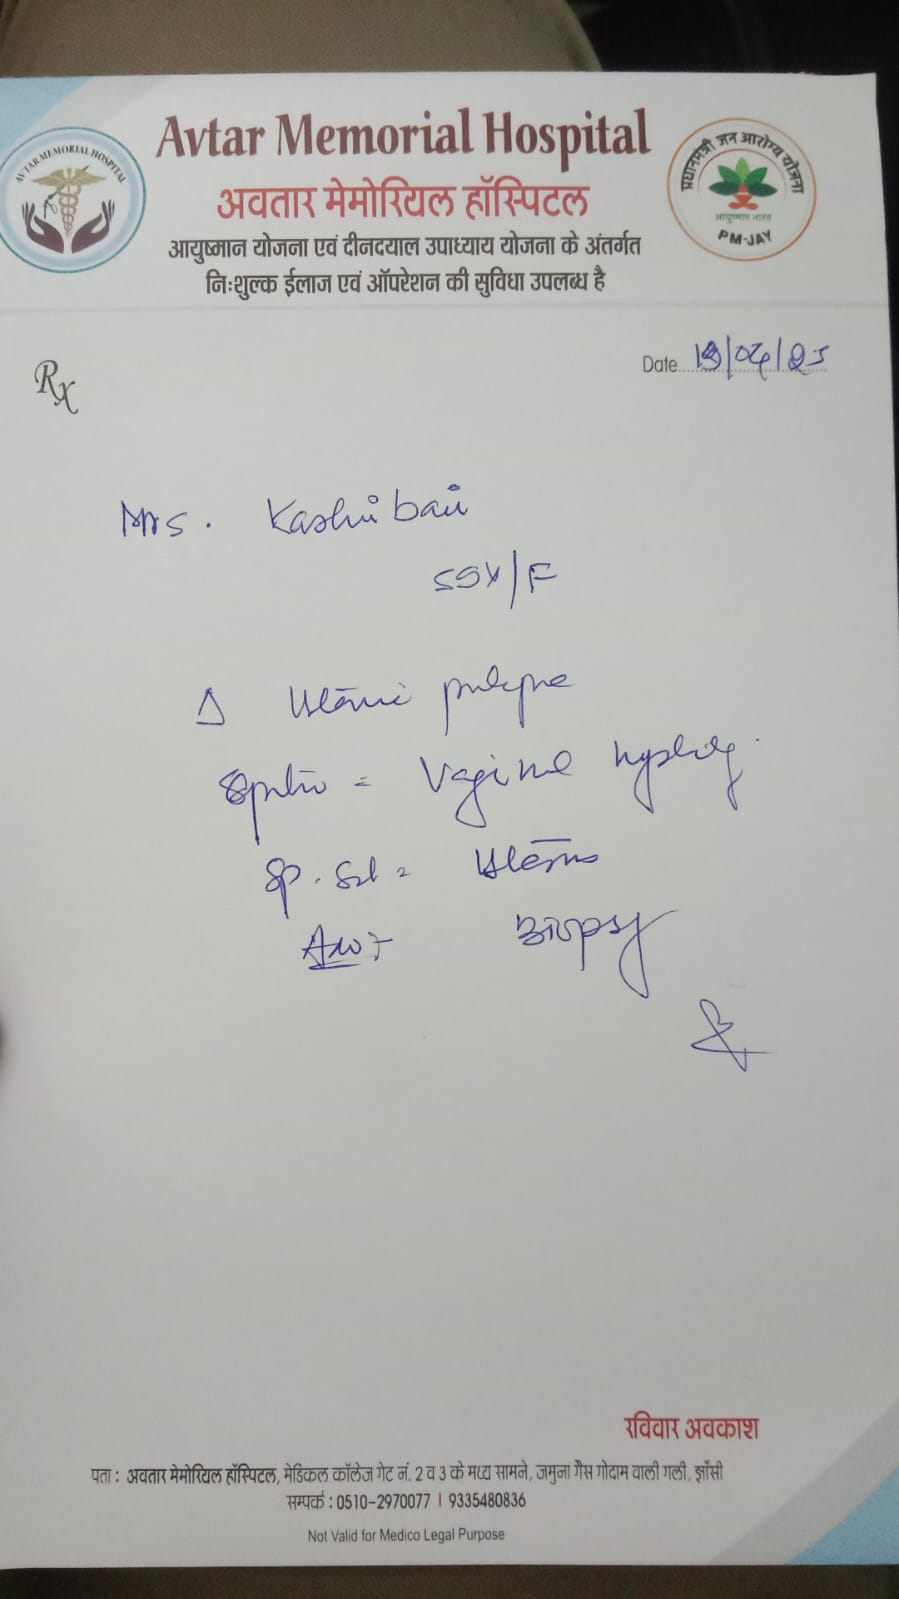 AVTAR MEMORIAL HOSPITAL
Avtar Memorial Hospital
अवतार मेमोरियल हॉस्पिटल
आयुष्मान योजना एवं दीनदयाल उपाध्याय योजना के अंतर्गत
निःशुल्क ईलाज एवं ऑपरेशन की सुविधा उपलब्ध है
प्रधानमंत्री जन आरोग्य योजना
आयुष्मान भारत
PM-JAY
Rx
Date /04/25
Mrs. Kashibai
55Y/F
Δ Uterine
= Vaginal
Sp. = Uterus
Biopsy
रविवार अवकाश
पता : अवतार मेमोरियल हॉस्पिटल, मेडिकल कॉलेज गेट नं. 2 व 3 के मध्य सामने, जमुना गैस गोदाम वाली गली, झाँसी
सम्पर्क : 0510-2970077 | 9335480836
Not Valid for Medico Legal Purpose